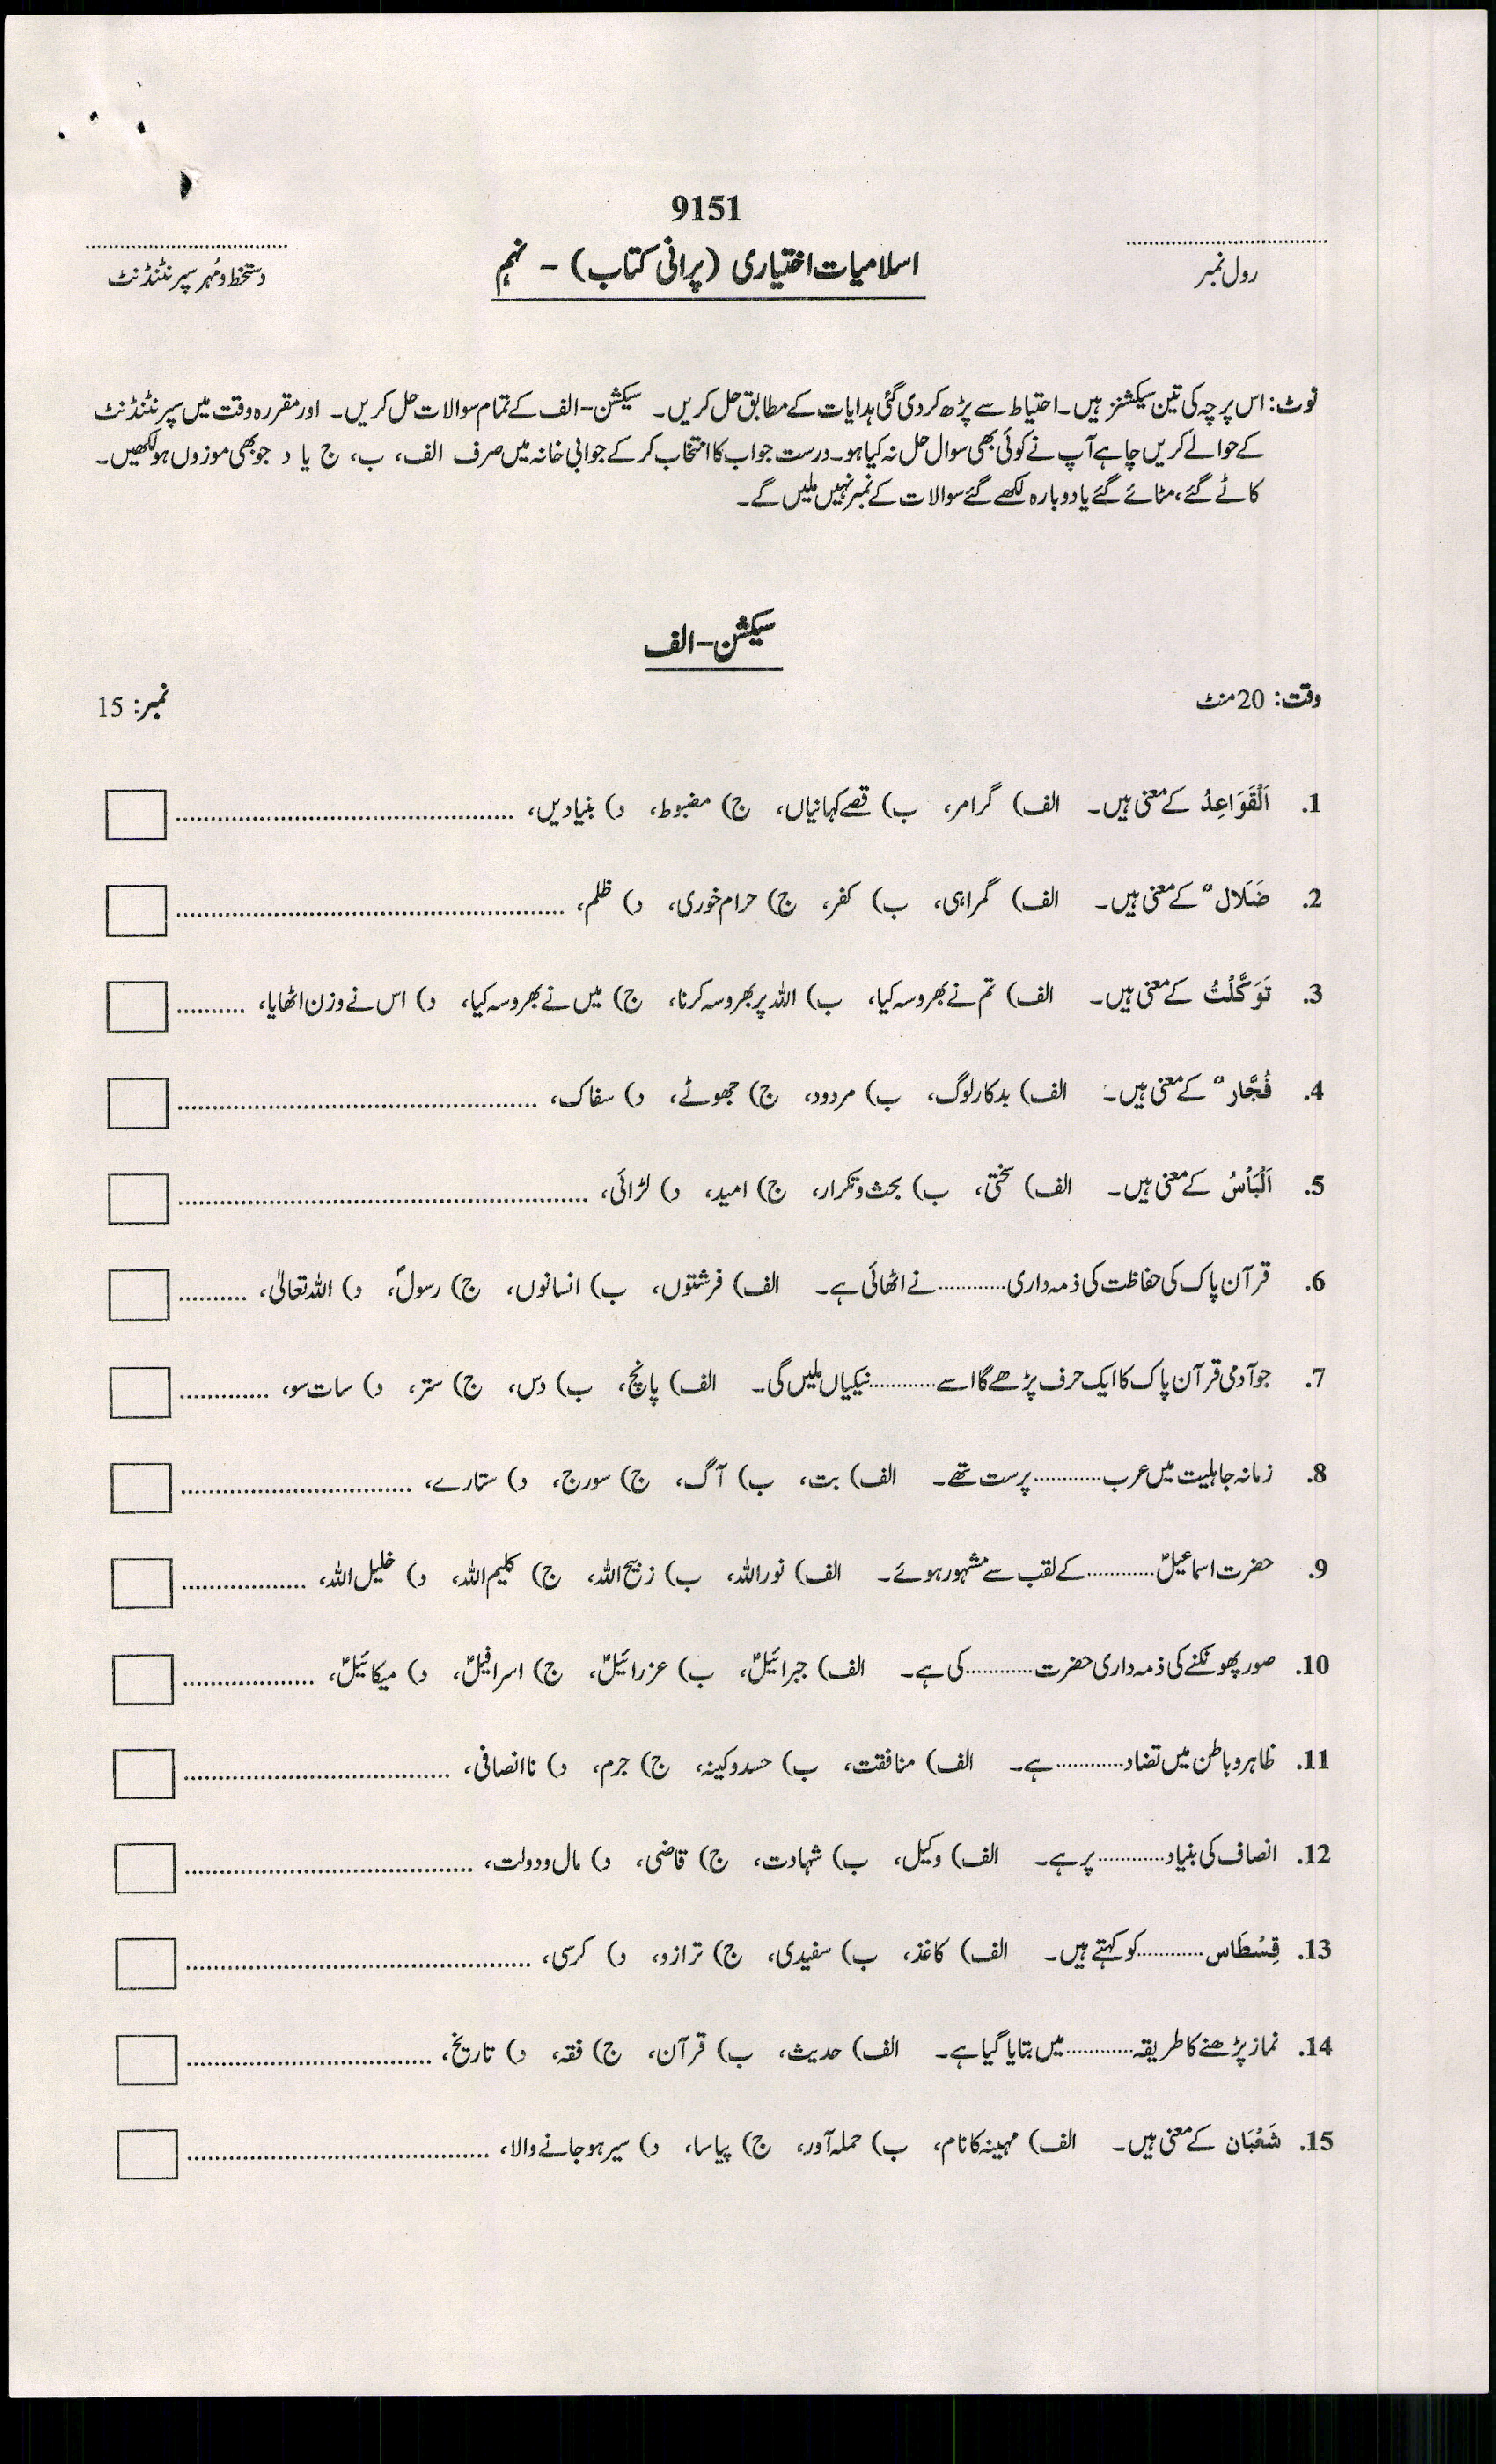 9151
رول نمبر
اسلامیات اختیاری (پرانی کتاب) - نہم
دستخط و مُہر سپرنٹنڈنٹ
نوٹ: اس پرچہ کی تین سیکشنز ہیں۔ احتیاط سے پڑھ کر دی گئی ہدایات کے مطابق حل کریں۔ سیکشن-الف کے تمام سوالات حل کریں۔ اور مقررہ وقت میں سپرنٹنڈنٹ
کے حوالے کریں چاہے آپ نے کوئی بھی سوال حل نہ کیا ہو۔ درست جواب کا انتخاب کر کے جوابی خانہ میں صرف الف، ب، ج یا د جو بھی موزوں ہو لکھیں۔
کاٹے گئے، مٹائے گئے یا دوبارہ لکھے گئے سوالات کے نمبر نہیں ملیں گے۔
سیکشن-الف
وقت: 20 منٹ نمبر: 15
1. اَلْقَوَاعِدُ کے معنی ہیں۔ الف) گرامر، ب) قصے کہانیاں، ج) مضبوط، د) بنیادیں، ..........
2. ضَلَال ٌ کے معنی ہیں۔ الف) گمراہی، ب) کفر، ج) حرام خوری، د) ظلم، ..........
3. تَوَکَّلْتُ کے معنی ہیں۔ الف) تم نے بھروسہ کیا، ب) اللہ پر بھروسہ کرنا، ج) میں نے بھروسہ کیا، د) اس نے وزن اٹھایا، ..........
4. فُجَّار ٌ کے معنی ہیں۔ الف) بدکار لوگ، ب) مردود، ج) جھوٹے، د) سفاک، ..........
5. اَلْبَاْسُ کے معنی ہیں۔ الف) سختی، ب) بحث و تکرار، ج) امید، د) لڑائی، ..........
6. قرآن پاک کی حفاظت کی ذمہ داری............نے اٹھائی ہے۔ الف) فرشتوں، ب) انسانوں، ج) رسولؐ، د) اللہ تعالیٰ، ..........
7. جو آدمی قرآن پاک کا ایک حرف پڑھے گا اسے............نیکیاں ملیں گی۔ الف) پانچ، ب) دس، ج) ستر، د) سات سو، ..........
8. زمانہ جاہلیت میں عرب............پرست تھے۔ الف) بت، ب) آگ، ج) سورج، د) ستارے، ..........
9. حضرت اسماعیلؑ............کے لقب سے مشہور ہوئے۔ الف) نور اللہ، ب) زبیح اللہ، ج) کلیم اللہ، د) خلیل اللہ، ..........
10. صور پھونکنے کی ذمہ داری حضرت............کی ہے۔ الف) جبرائیلؑ، ب) عزرائیلؑ، ج) اسرافیلؑ، د) میکائیلؑ، ..........
11. ظاہر و باطن میں تضاد............ہے۔ الف) منافقت، ب) حسد و کینہ، ج) جرم، د) نا انصافی، ..........
12. انصاف کی بنیاد............پر ہے۔ الف) وکیل، ب) شہادت، ج) قاضی، د) مال و دولت، ..........
13. قِسْطَاس............کو کہتے ہیں۔ الف) کاغذ، ب) سفیدی، ج) ترازو، د) کرسی، ..........
14. نماز پڑھنے کا طریقہ............میں بتایا گیا ہے۔ الف) حدیث، ب) قرآن، ج) فقہ، د) تاریخ، ..........
15. شَعْبَان کے معنی ہیں۔ الف) مہینہ کا نام، ب) حملہ آور، ج) پیاسا، د) سیر ہو جانے والا، ..........